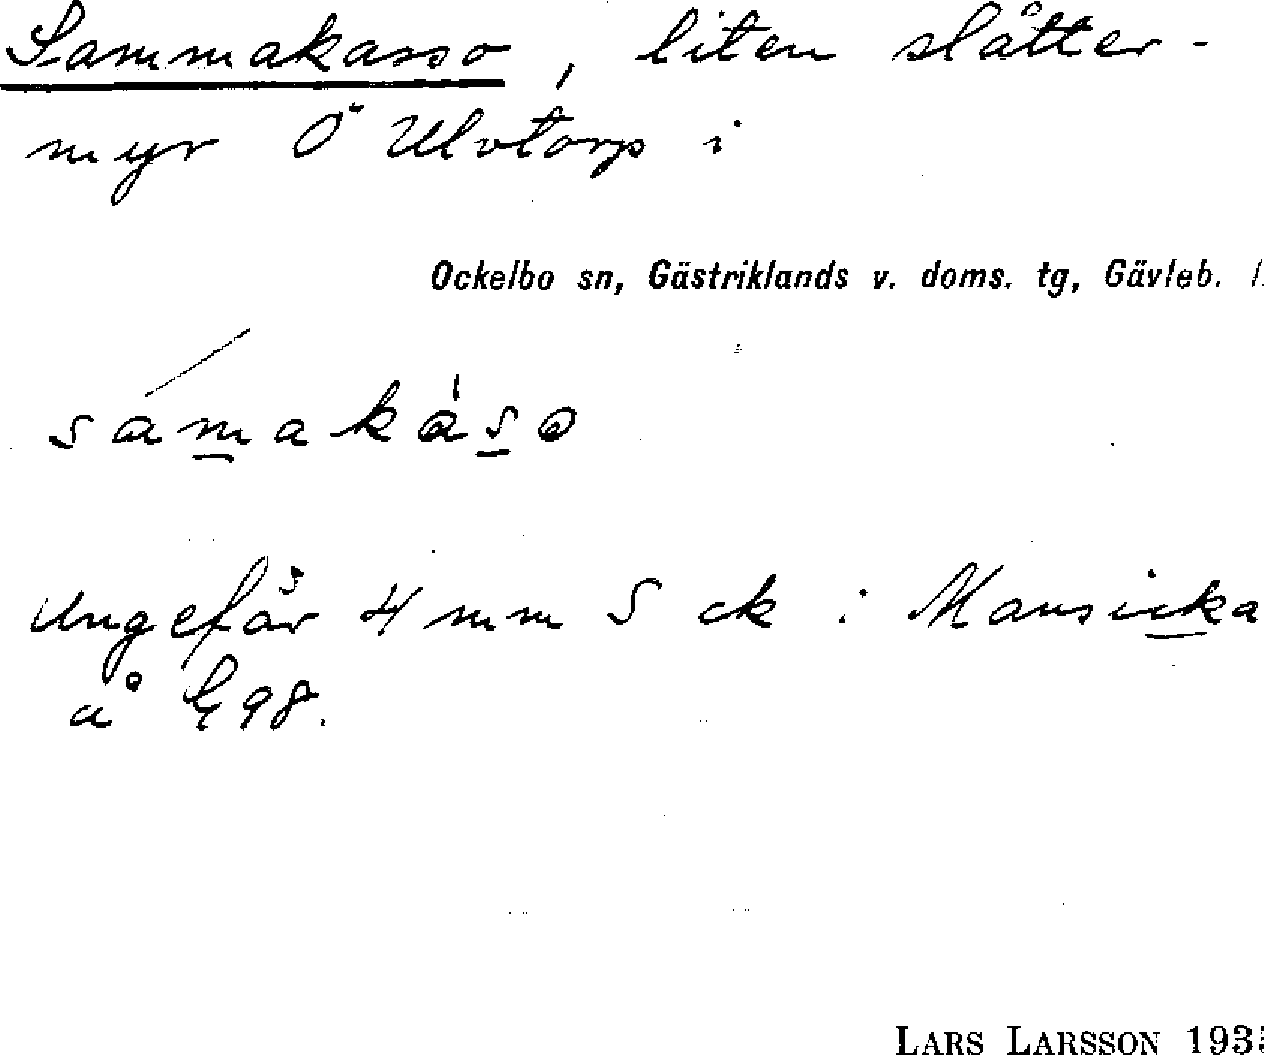 Sammakasso, liten slåtter-
myr Ö Ulvtorp i
Ockelbo sn, Gästriklands v. doms. tg, Gävleb. l.
sámakàso
Ungefär 4 mm S ck i Mansicka
å G 98.
LARS LARSSON 193